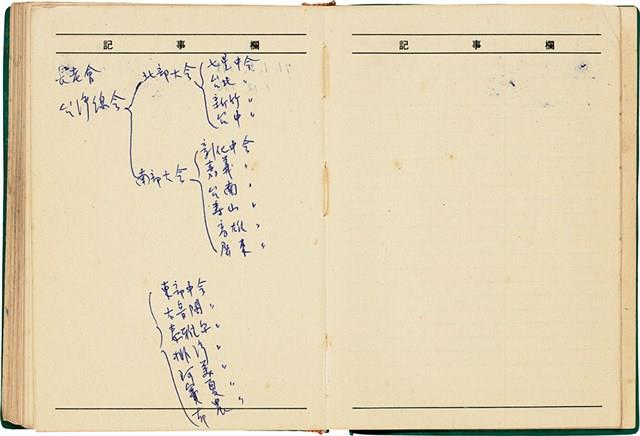 記事欄
長老會
台湾總会
北部大会
七星中会
台北 〃
新竹 〃
台中 〃
南部大会
彰化中会
嘉義 〃
台南 〃
壽山 〃
高雄 〃
屏東 〃
東部中会
太魯閣 〃
泰雅尔 〃
排湾 〃
阿美 〃
賓夏 〃
布農 〃
記事欄